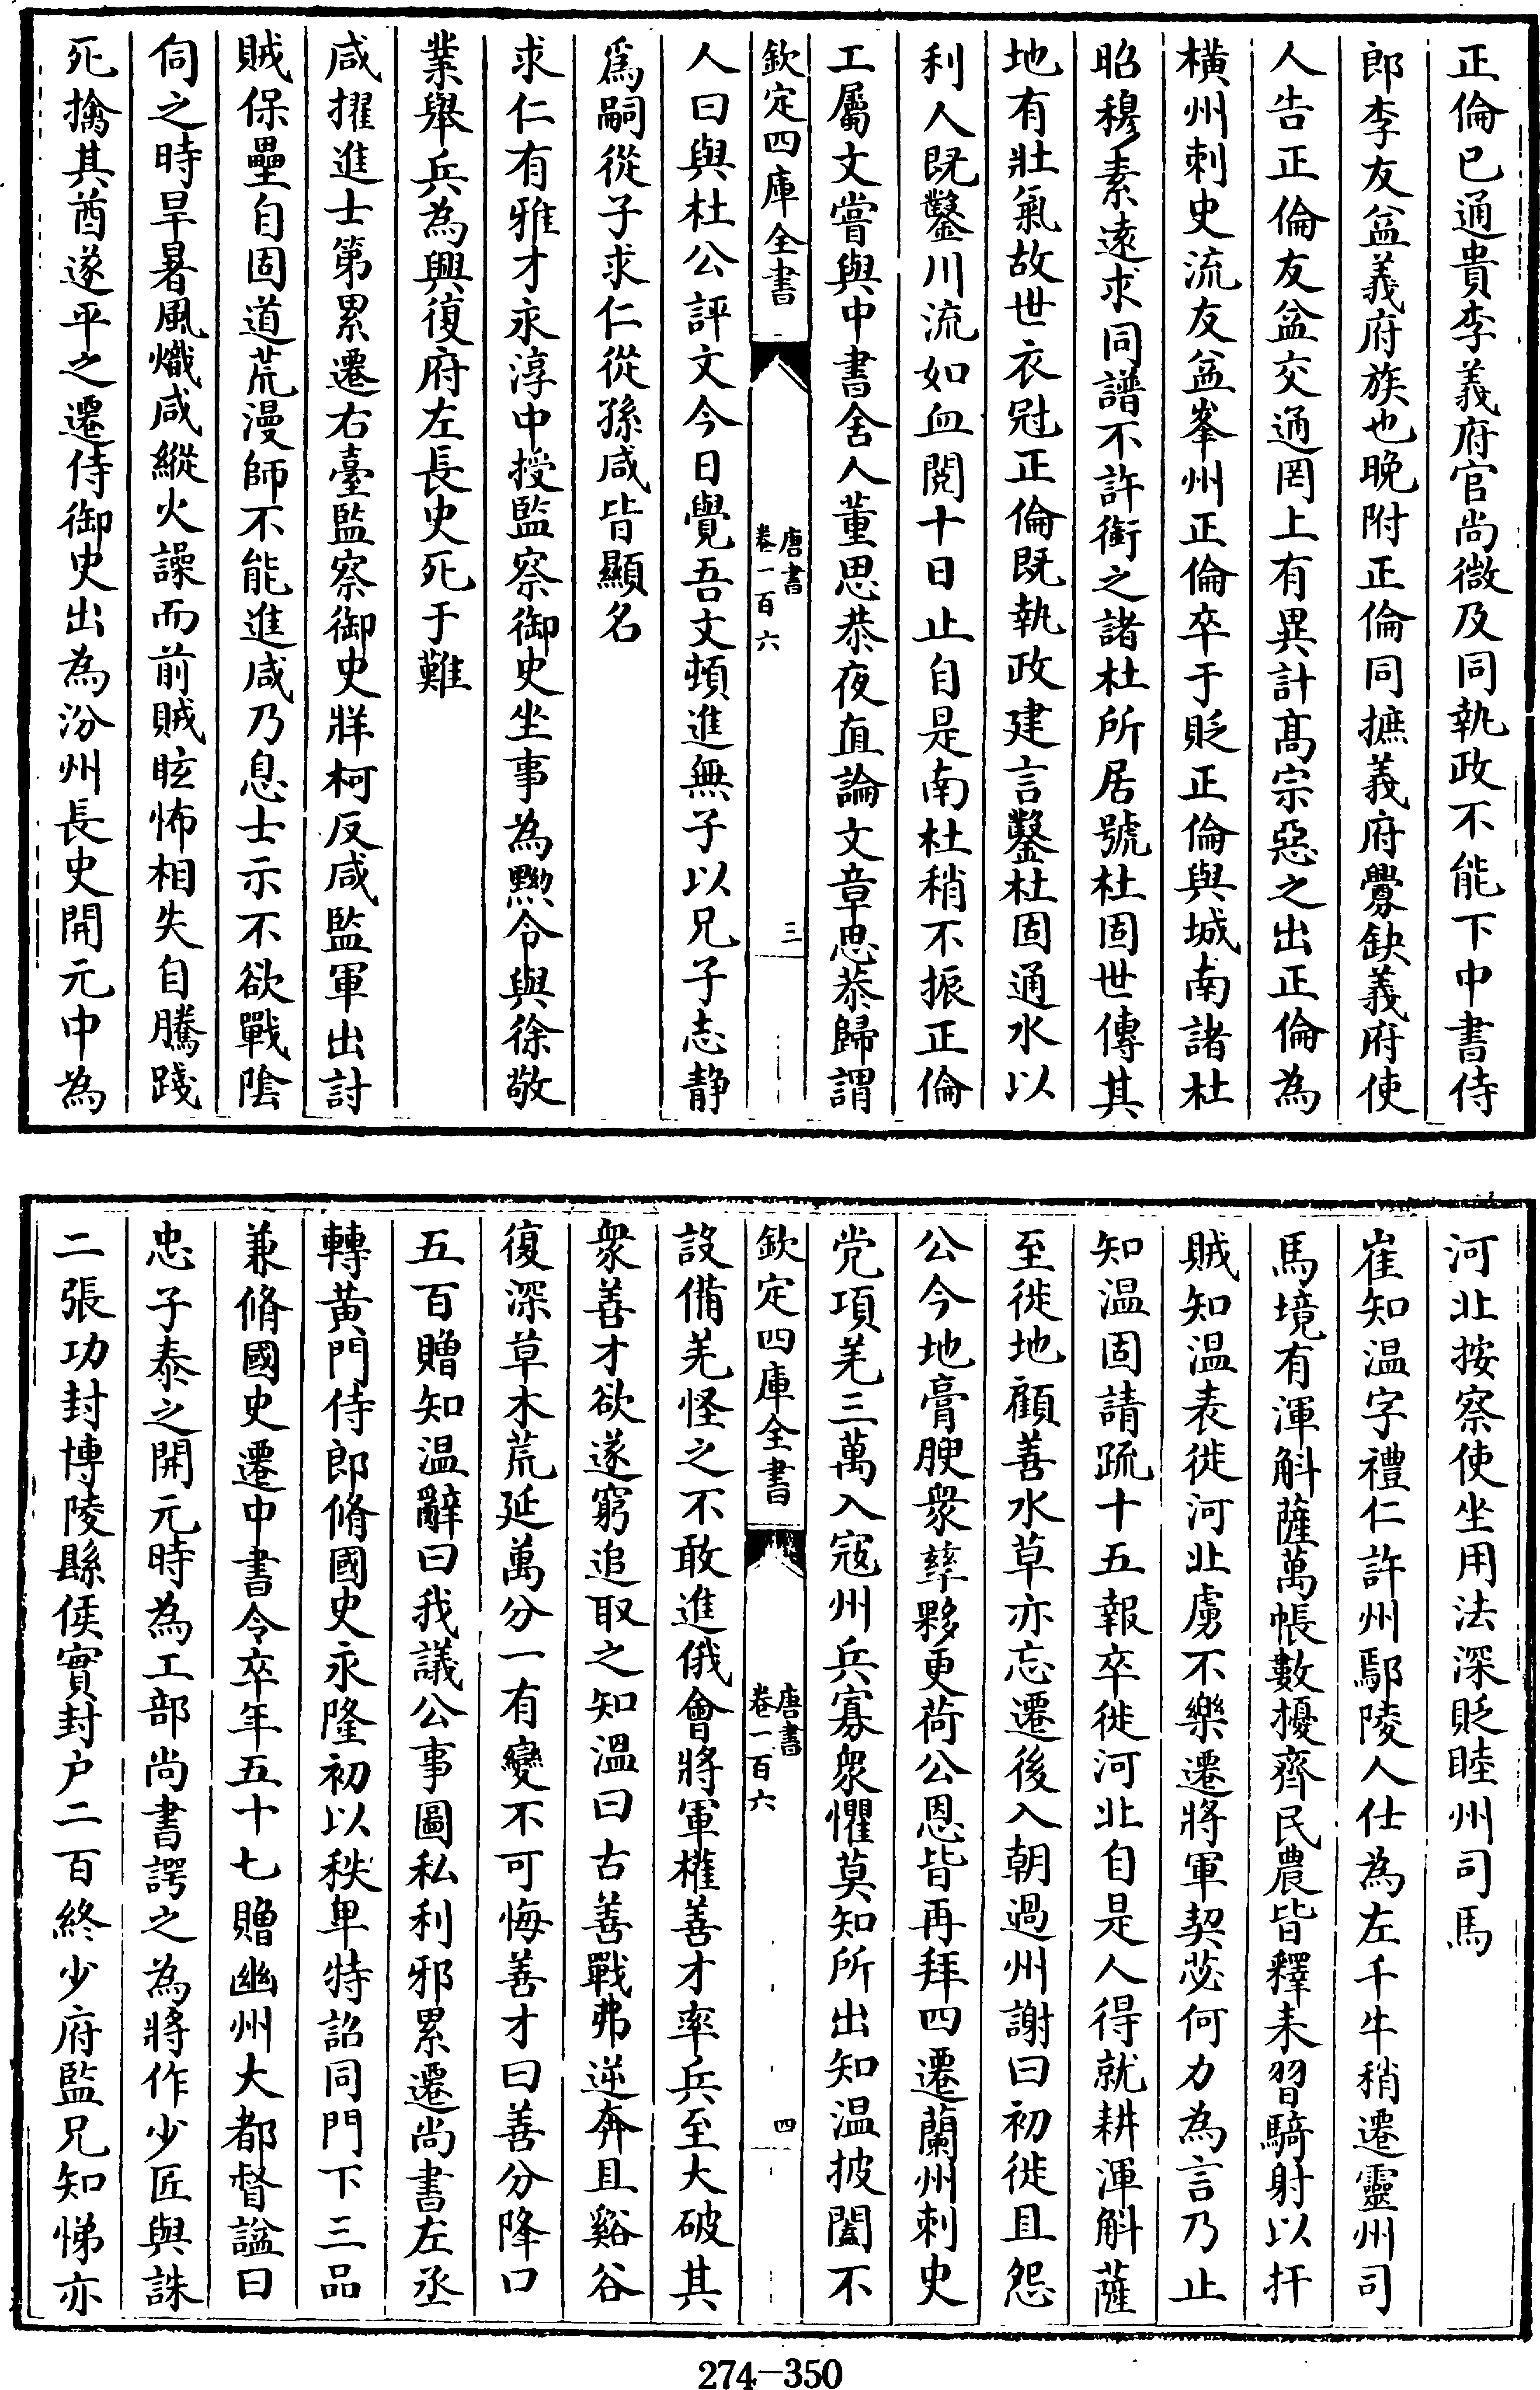 正倫已通貴李義府官尚微及同執政不能下中書侍
郎李友益義府族也晚附正倫同摭義府釁缺義府使
人告正倫友益交通罔上有異計髙宗惡之出正倫為
橫州刺史流友益峯州正倫卒于貶正倫與城南諸杜
昭穆素逺求同譜不許銜之諸杜所居號杜固世傳其
地有壯氣故世衣冠正倫既執政建言鑿杜固通水以
利人既鑿川流如血閱十日止自是南杜稍不振正倫
工屬文嘗與中書舍人董思恭夜直論文章思恭歸謂
欽定四庫全書
唐書
卷一百六
三
人曰與杜公評文今日覺吾文頓進無子以兄子志静
爲嗣從子求仁從孫咸皆顯名
求仁有雅才永淳中授監察御史坐事為黟令與徐敬
業舉兵為興復府左長史死于難
咸擢進士第累遷右臺監察御史牂柯反咸監軍出討
賊保壘自固道荒漫師不能進咸乃息士示不欲戰隂
伺之時旱暑風熾咸縱火譟而前賊眩怖相失自騰踐
死擒其酋遂平之遷侍御史出為汾州長史開元中為
河北按察使坐用法深貶睦州司馬
崔知温字禮仁許州鄢陵人仕為左千牛稍遷靈州司
馬境有渾斛薩萬帳數擾齊民農皆釋耒習騎射以扞
賊知温表徙河北虜不樂遷將軍契苾何力為言乃止
知温固請疏十五報卒徙河北自是人得就耕渾斛薩
至徙地顧善水草亦忘遷後入朝過州謝曰初徙且怨
公今地膏腴衆孳夥更荷公恩皆再拜四遷蘭州刺史
党項羌三萬入寇州兵寡衆懼莫知所出知温披闔不
欽定四庫全書
唐書
卷一百六
四
設備羌怪之不敢進俄會將軍權善才率兵至大破其
衆善才欲遂窮追取之知溫曰古善戰弗逆奔且谿谷
復深草木荒延萬分一有變不可悔善才曰善分降口
五百贈知温辭曰我議公事圖私利邪累遷尚書左丞
轉黃門侍郎脩國史永隆初以秩卑特詔同門下三品
兼脩國史遷中書令卒年五十七贈幽州大都督諡曰
忠子泰之開元時為工部尚書諤之為將作少匠與誅
二張功封博陵縣侯實封户二百終少府監兄知悌亦
274-350